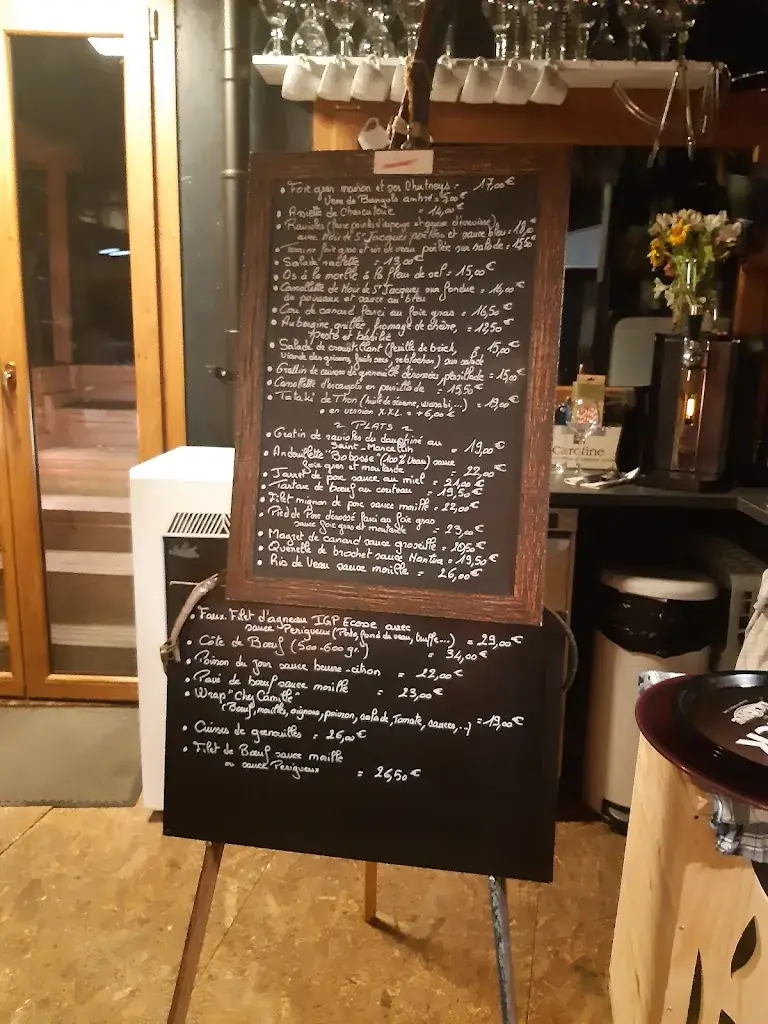 • Foie gras maison et ses Chutneys = 17,00€
Verre de Banyuls ambré
• Assiette de Charcuterie = 14,00€
• Ravioles
avec Noix de St Jacques poêlées et sauce bleu = 18,00
Terrine foie gras et ris de veau poêlée sur salade = 15,50€
• Salade raclette = 13,00€
• Os à la moelle à la fleur de sel = 15,00€
• Cassollette de Noix de St Jacques sur fondue = 16,00€
de poireaux et sauce au bleu
• Cou de canard farci au foie gras = 16,50€
• Aubergine grillée, fromage de chèvre, = 12,50€
Pesto et basilic
• Salade de croustillant (feuille de brick, = 15,00€
viande des grisons, fruits secs, reblochon) sur salade
• Gratin de cuisses de grenouille désossées, persillade = 15,00€
• Cassollette d'escargots en persillade = 15,50€
• Tataki de Thon (huile de sésame, wasabi,...) = 19,00€
• en version XXL = +6,00€
~ PLATS ~
• Gratin de ravioles du dauphiné au = 19,00€
Saint-Marcellin
• Andouillette "Bobosse" (100% Veau) sauce = 22,00€
foie gras et moutarde
• Jarret de porc sauce au miel = 21,00€
• Tartare de bœuf au couteau = 19,50€
• Filet mignon de porc sauce morille = 22,00€
• Pied de Porc désossé farci au foie gras
sauce foie gras et moutarde = 23,00€
• Magret de canard sauce groseille = 20,50€
• Quenelle de brochet sauce Nantua = 19,50€
• Ris de Veau sauce morille = 26,00€
• Faux Filet d'agneau IGP Ecosse avec
sauce Périgueux (Porto, fond de veau, truffe...) = 29,00€
• Côte de Bœuf (500-600 gr.) = 34,00€
• Poisson du jour sauce beurre-citron = 22,00€
• Pavé de bœuf sauce morille = 23,00€
• Wrap "Chez Camille"
Bœuf, morilles, oignons, poivron, salade, tomate, sauces,...) = 19,00€
• Cuisses de grenouilles = 26,00€
• Filet de Bœuf sauce morille
ou sauce Périgueux = 26,50€
Carofine